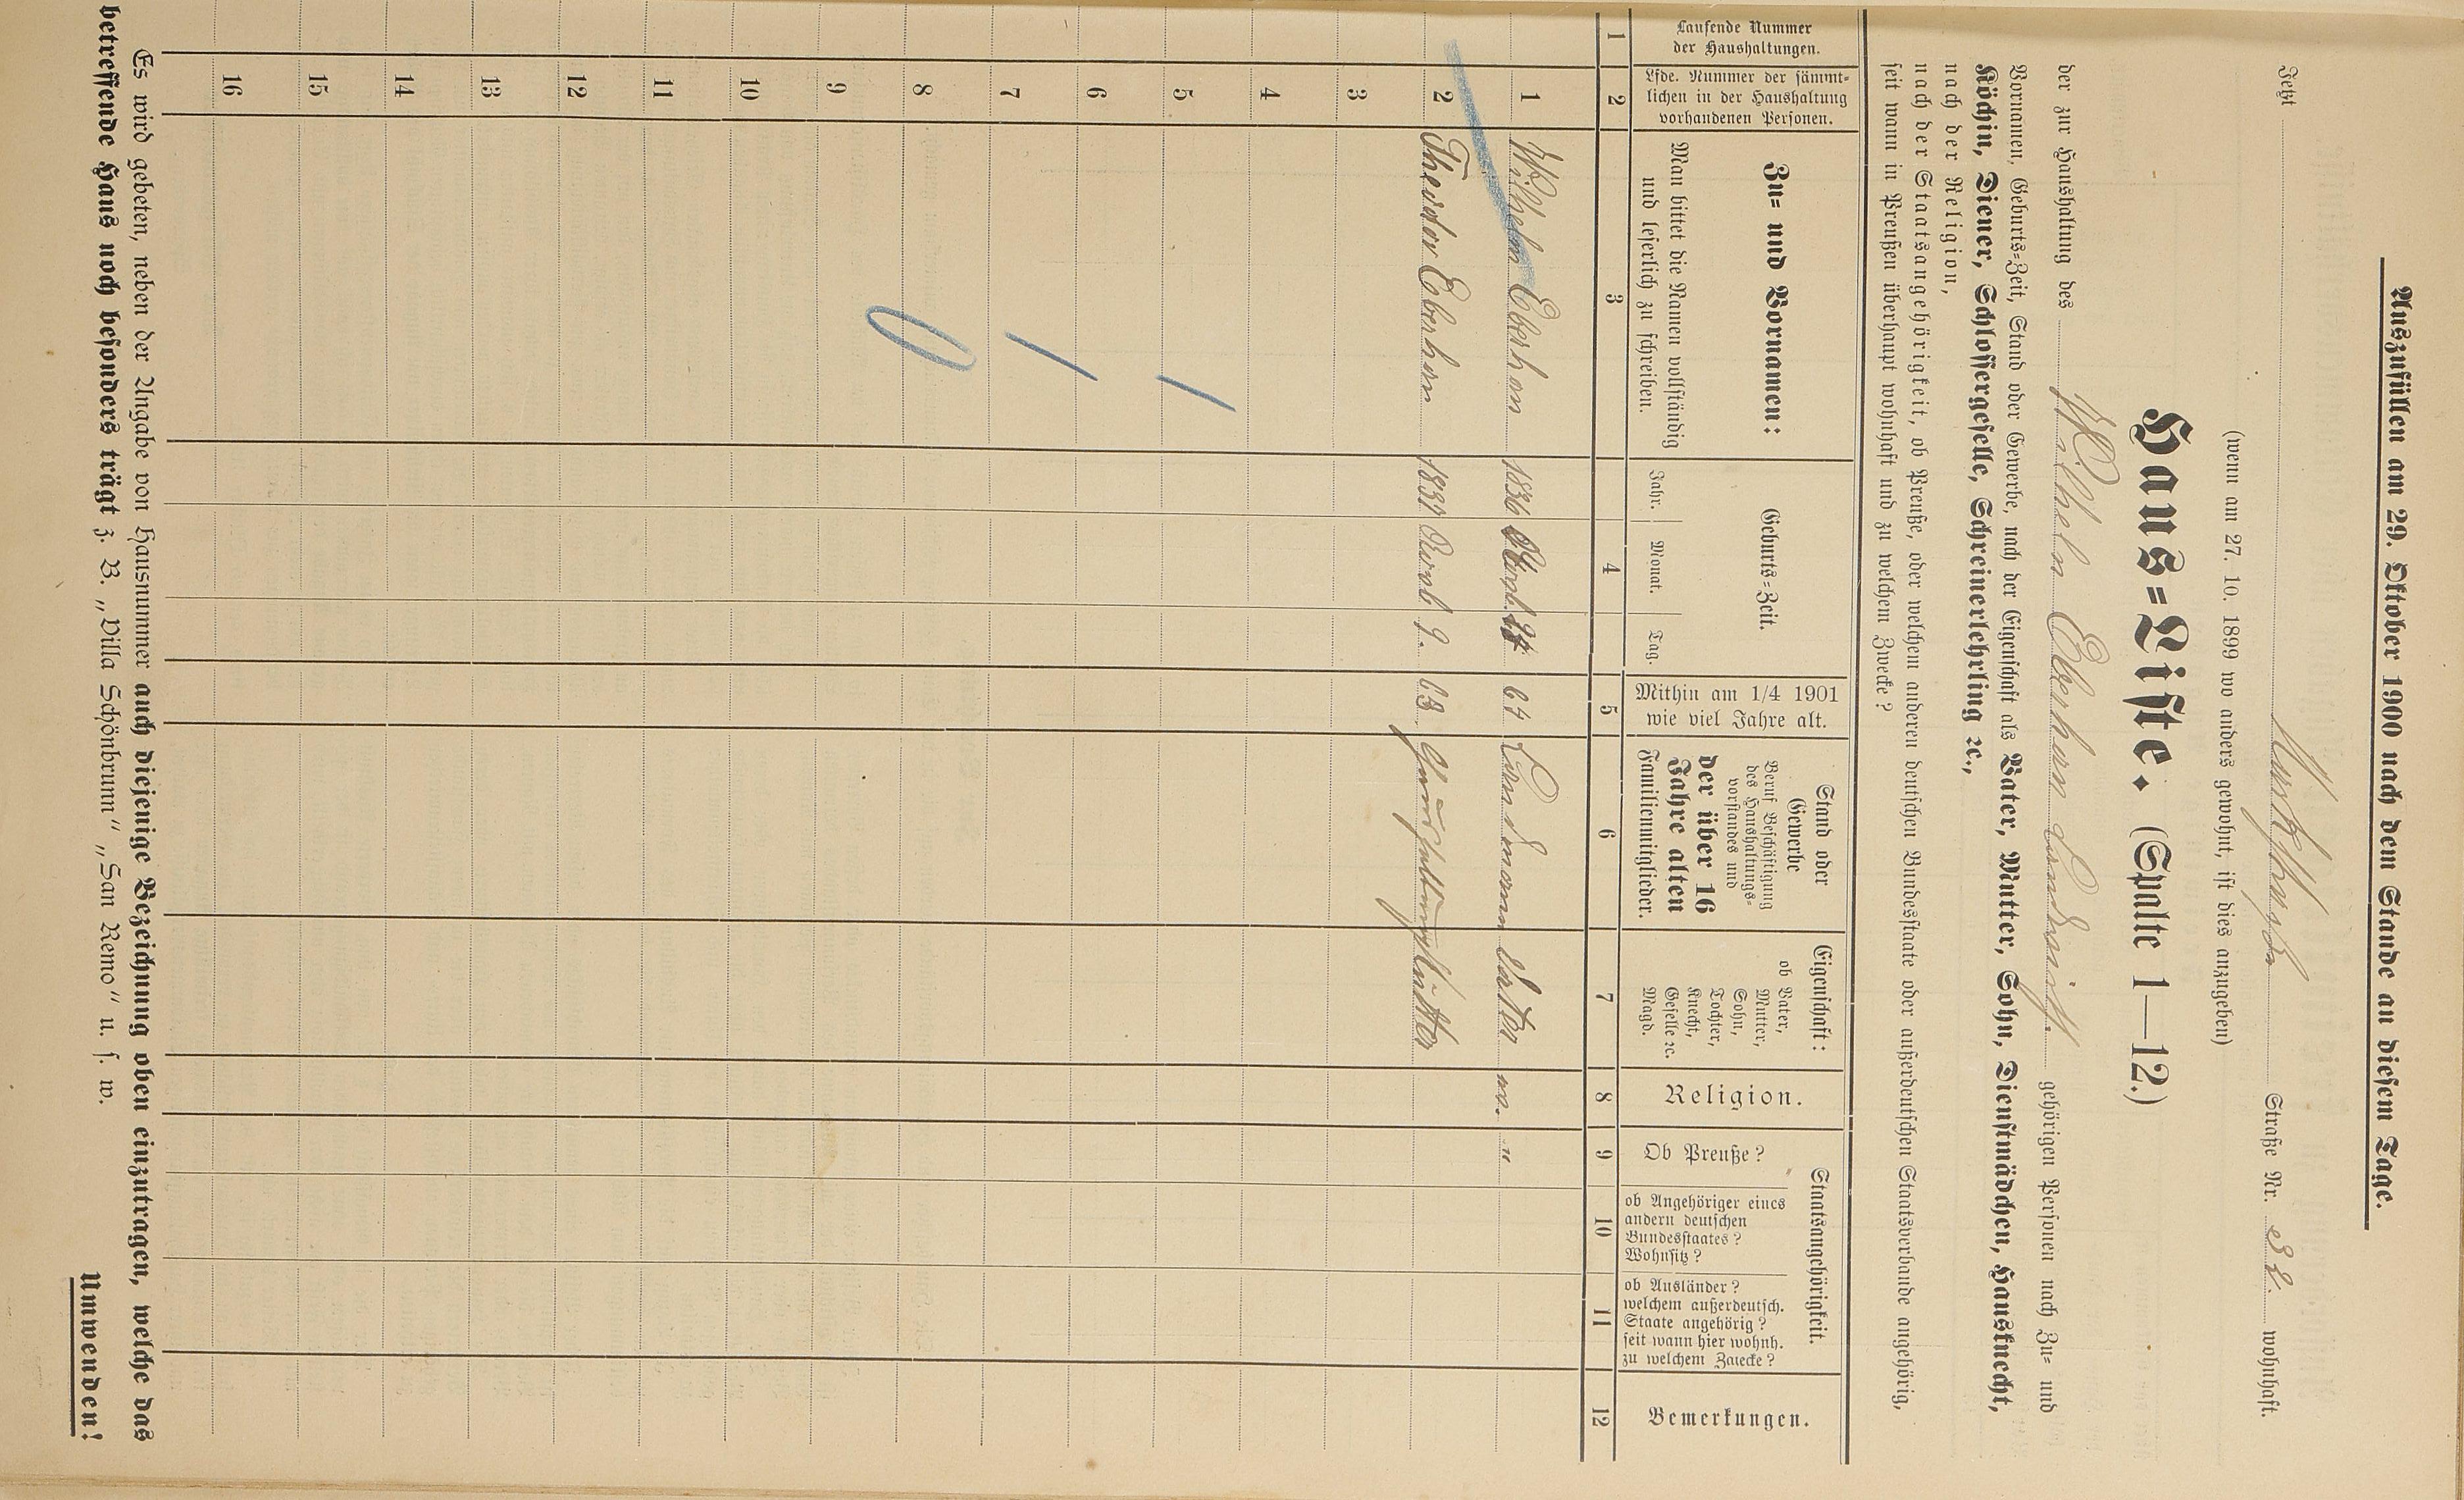 Auszufüllen am 29. Oktober 1900 nach dem Stande an diesem Tage.
Jetzt Straße Nr. 32 wohnhaft.
(wenn am 27. 10. 1899 wo anders gewohnt, ist dies anzugeben)
Haus=Liste. (Spalte 1—12.)
der zur Haushaltung des Wilhelm gehörigen Personen nach Zu= und
Vornamen, Geburts=Zeit, Stand oder Gewerbe, nach der Eigenschaft als Vater, Mutter, Sohn, Dienstmädchen, Hausknecht,
Köchin, Diener, Schlossergeselle, Schreinerlehrling ꝛc.,
nach der Religion,
nach der Staatsangehörigkeit, ob Preuße, oder welchem anderen deutschen Bundesstaate oder außerdeutschen Staatsverbande angehörig,
seit wann in Preußen überhaupt wohnhaft und zu welchem Zwecke?
Laufende Nummer
der Haushaltungen.
Lfde. Nummer der sämmt=
lichen in der Haushaltung
vorhandenen Personen.
Zu= und Vornamen:
Man bittet die Namen vollständig
und leserlich zu schreiben.
Geburts=Zeit.
Jahr. Monat. Tag.
Mithin am 1/4 1901
wie viel Jahre alt.
Stand oder
Gewerbe
Beruf Beschäftigung
des Haushaltungs=
vorstandes und
der über 16
Jahre alten
Familienmitglieder.
Eigenschaft:
ob Vater,
Mutter,
Sohn,
Tochter,
Knecht,
Geselle ꝛc.
Magd.
Religion.
Staatsangehörigkeit.
Ob Preuße?
ob Angehöriger eines
andern deutschen
Bundesstaates?
Wohnsitz?
ob Ausländer?
welchem außerdeutsch.
Staate angehörig?
seit wann hier wohnh.
zu welchem Zwecke?
Bemerkungen.
1 2 3 4 5 6 7 8 9 10 11 12
1 Wilhelm 1836 64 Landmann Vater
2 Theodor 1837 9. 63
3
4
5
6
7
8
9
10
11
12
13
14
15
16
Es wird gebeten, neben der Angabe von Hausnummer auch diejenige Bezeichnung oben einzutragen, welche das
betreffende Haus noch besonders trägt z. B. „Villa Schönbrunn" „San Remo" u. s. w.
Umwenden!